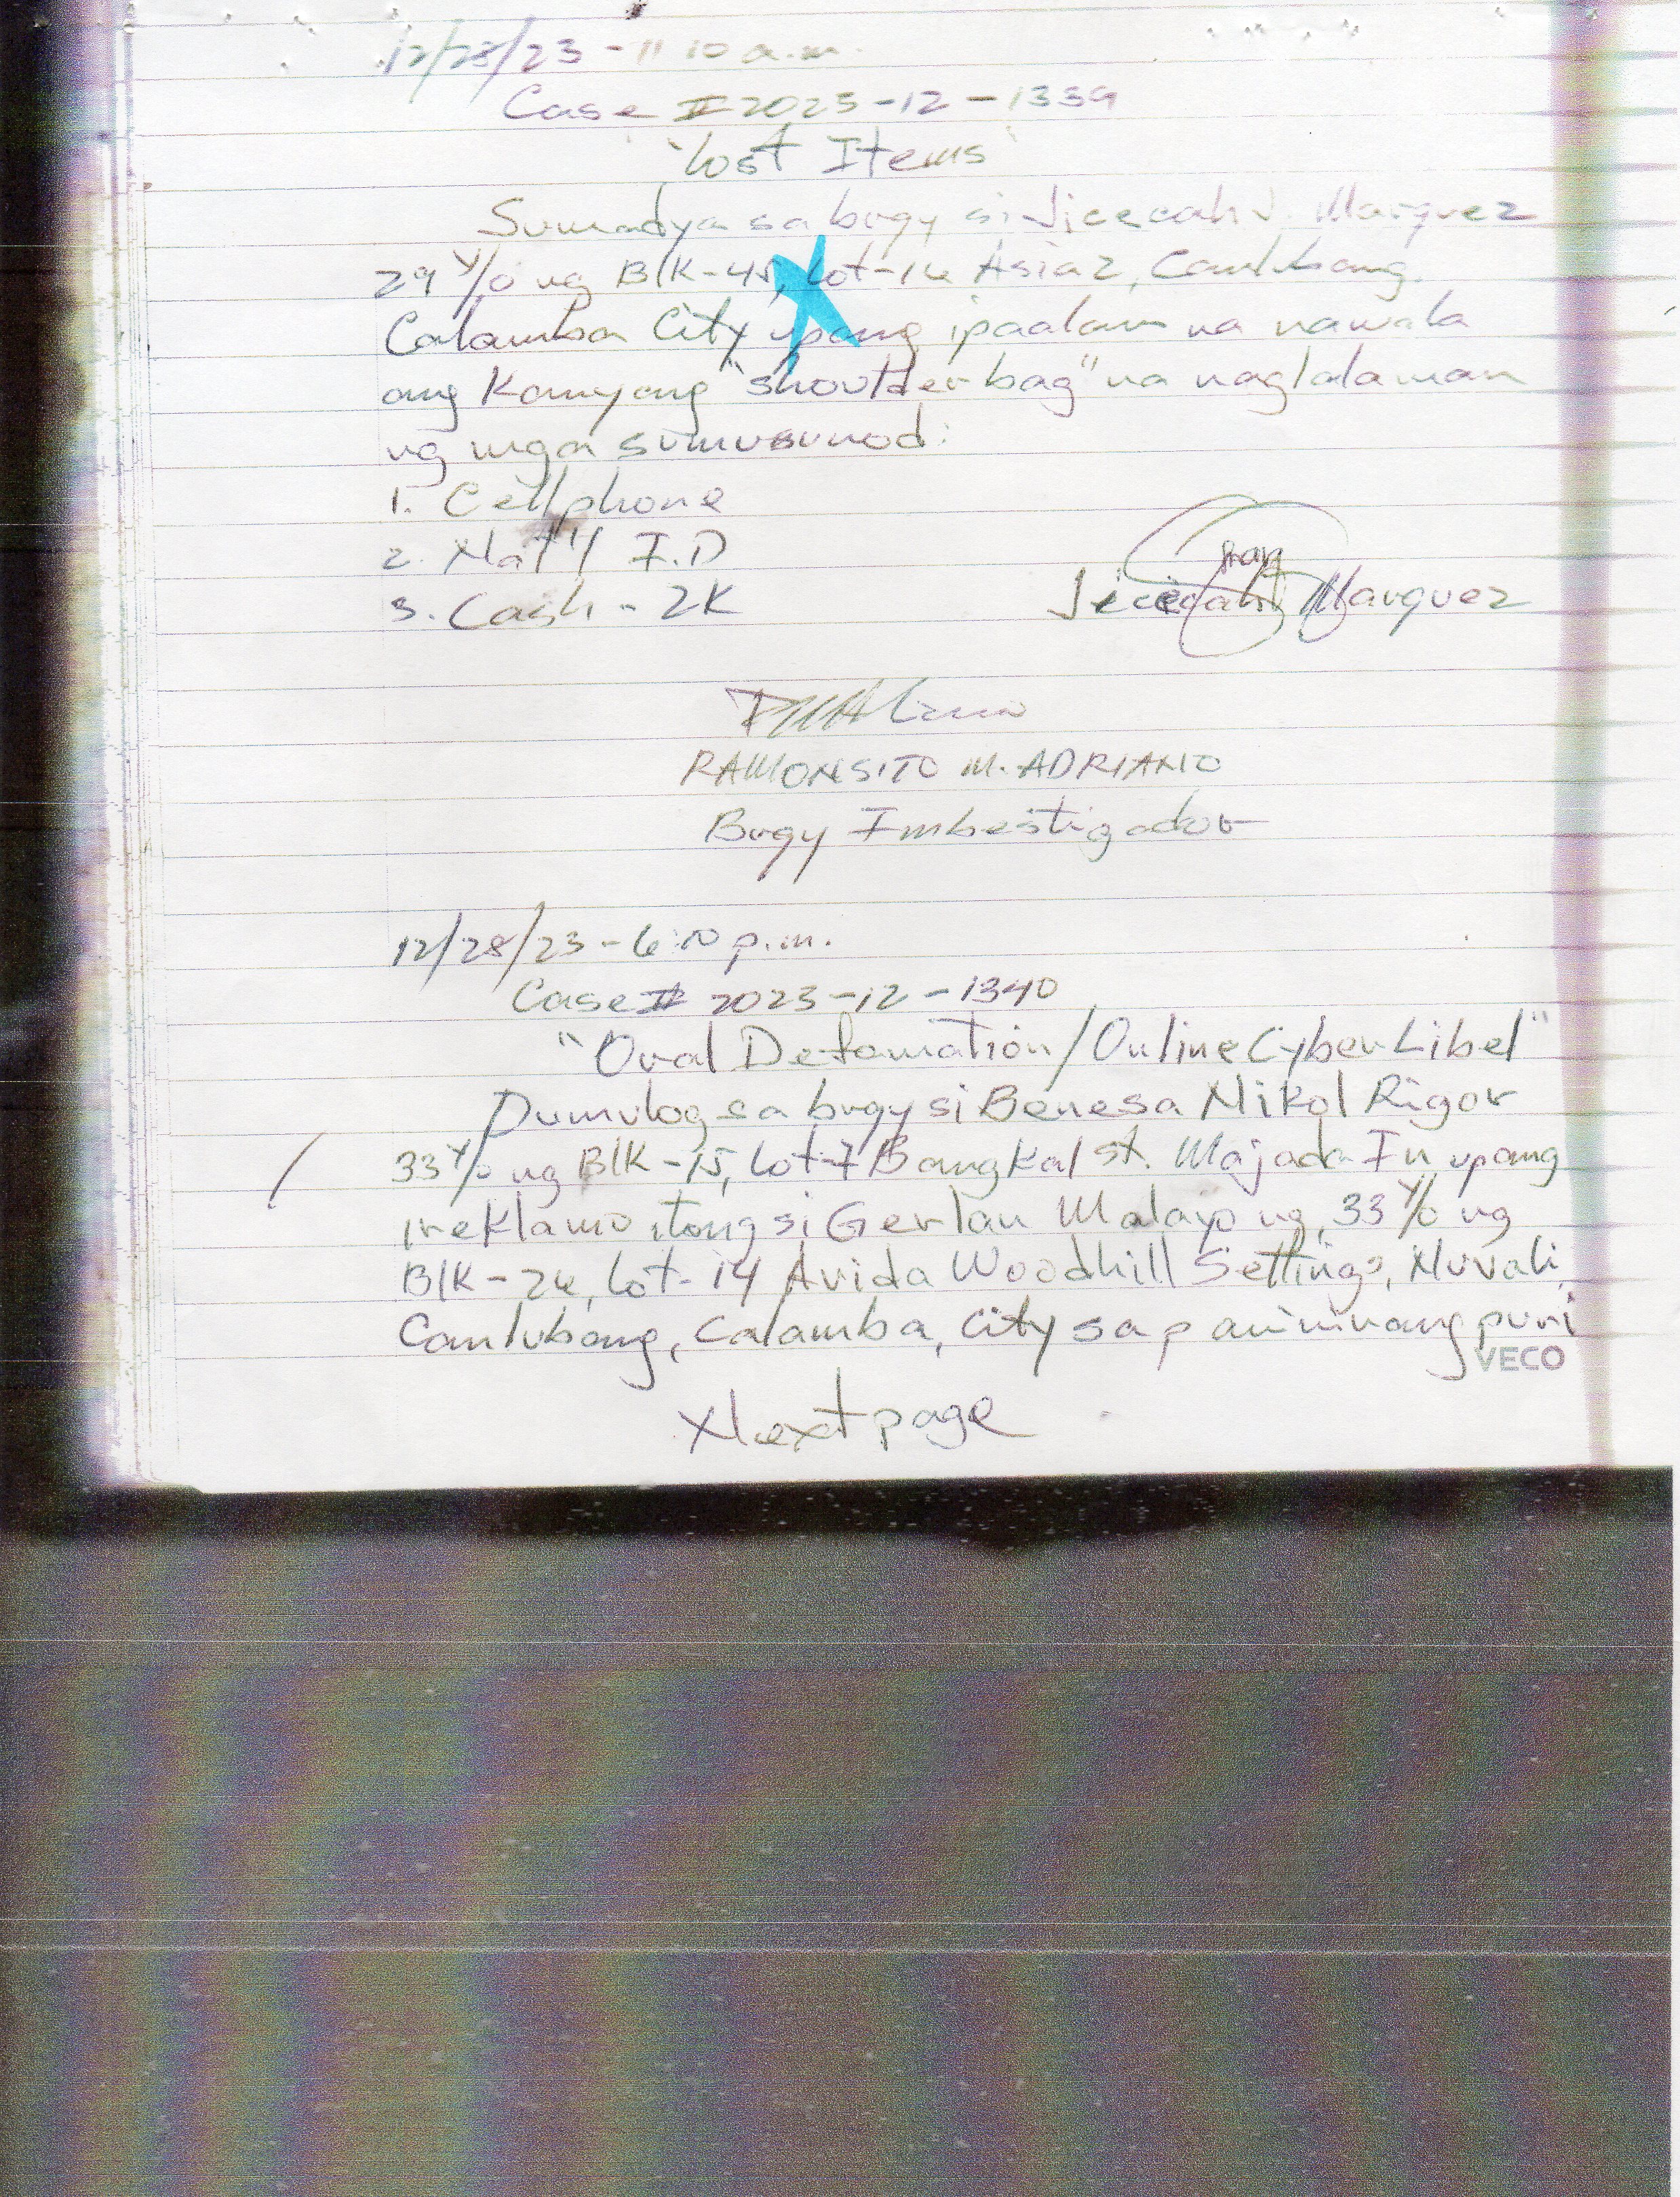 12/28/23 - 11:10 a.m.
Case # 2023-12-1339
"Lost Items"
Sumadya sa brgy si Jicecah J. Marquez
29 y/o ng Blk-45, Lot-16 Asia 2, Canlubang,
Calamba City upang ipaalam na nawala
ang kanyang "shoulder bag" na naglalaman
ng mga sumusunod:
1. Cellphone
2. Nat'l I.D
3. Cash - 2K
Jicecah Marquez
RAMONSITO M. ADRIANO
Brgy Imbestigador
12/28/23 - 6:10 p.m.
Case # 2023-12-1340
"Oral Defamation/Online Cyber Libel"
Dumulog sa brgy si Benesa Nikol Rigor
33 y/o ng Blk-15, Lot-7 Bangkal st. Majada In upang
ireklamo itong si Gerlan Malayo ng, 33 y/o ng
Blk-26, Lot-14 Avida Woodhill Settings, Nuvali,
Canlubang, Calamba, City sa paninirang puri
VECO
Next page